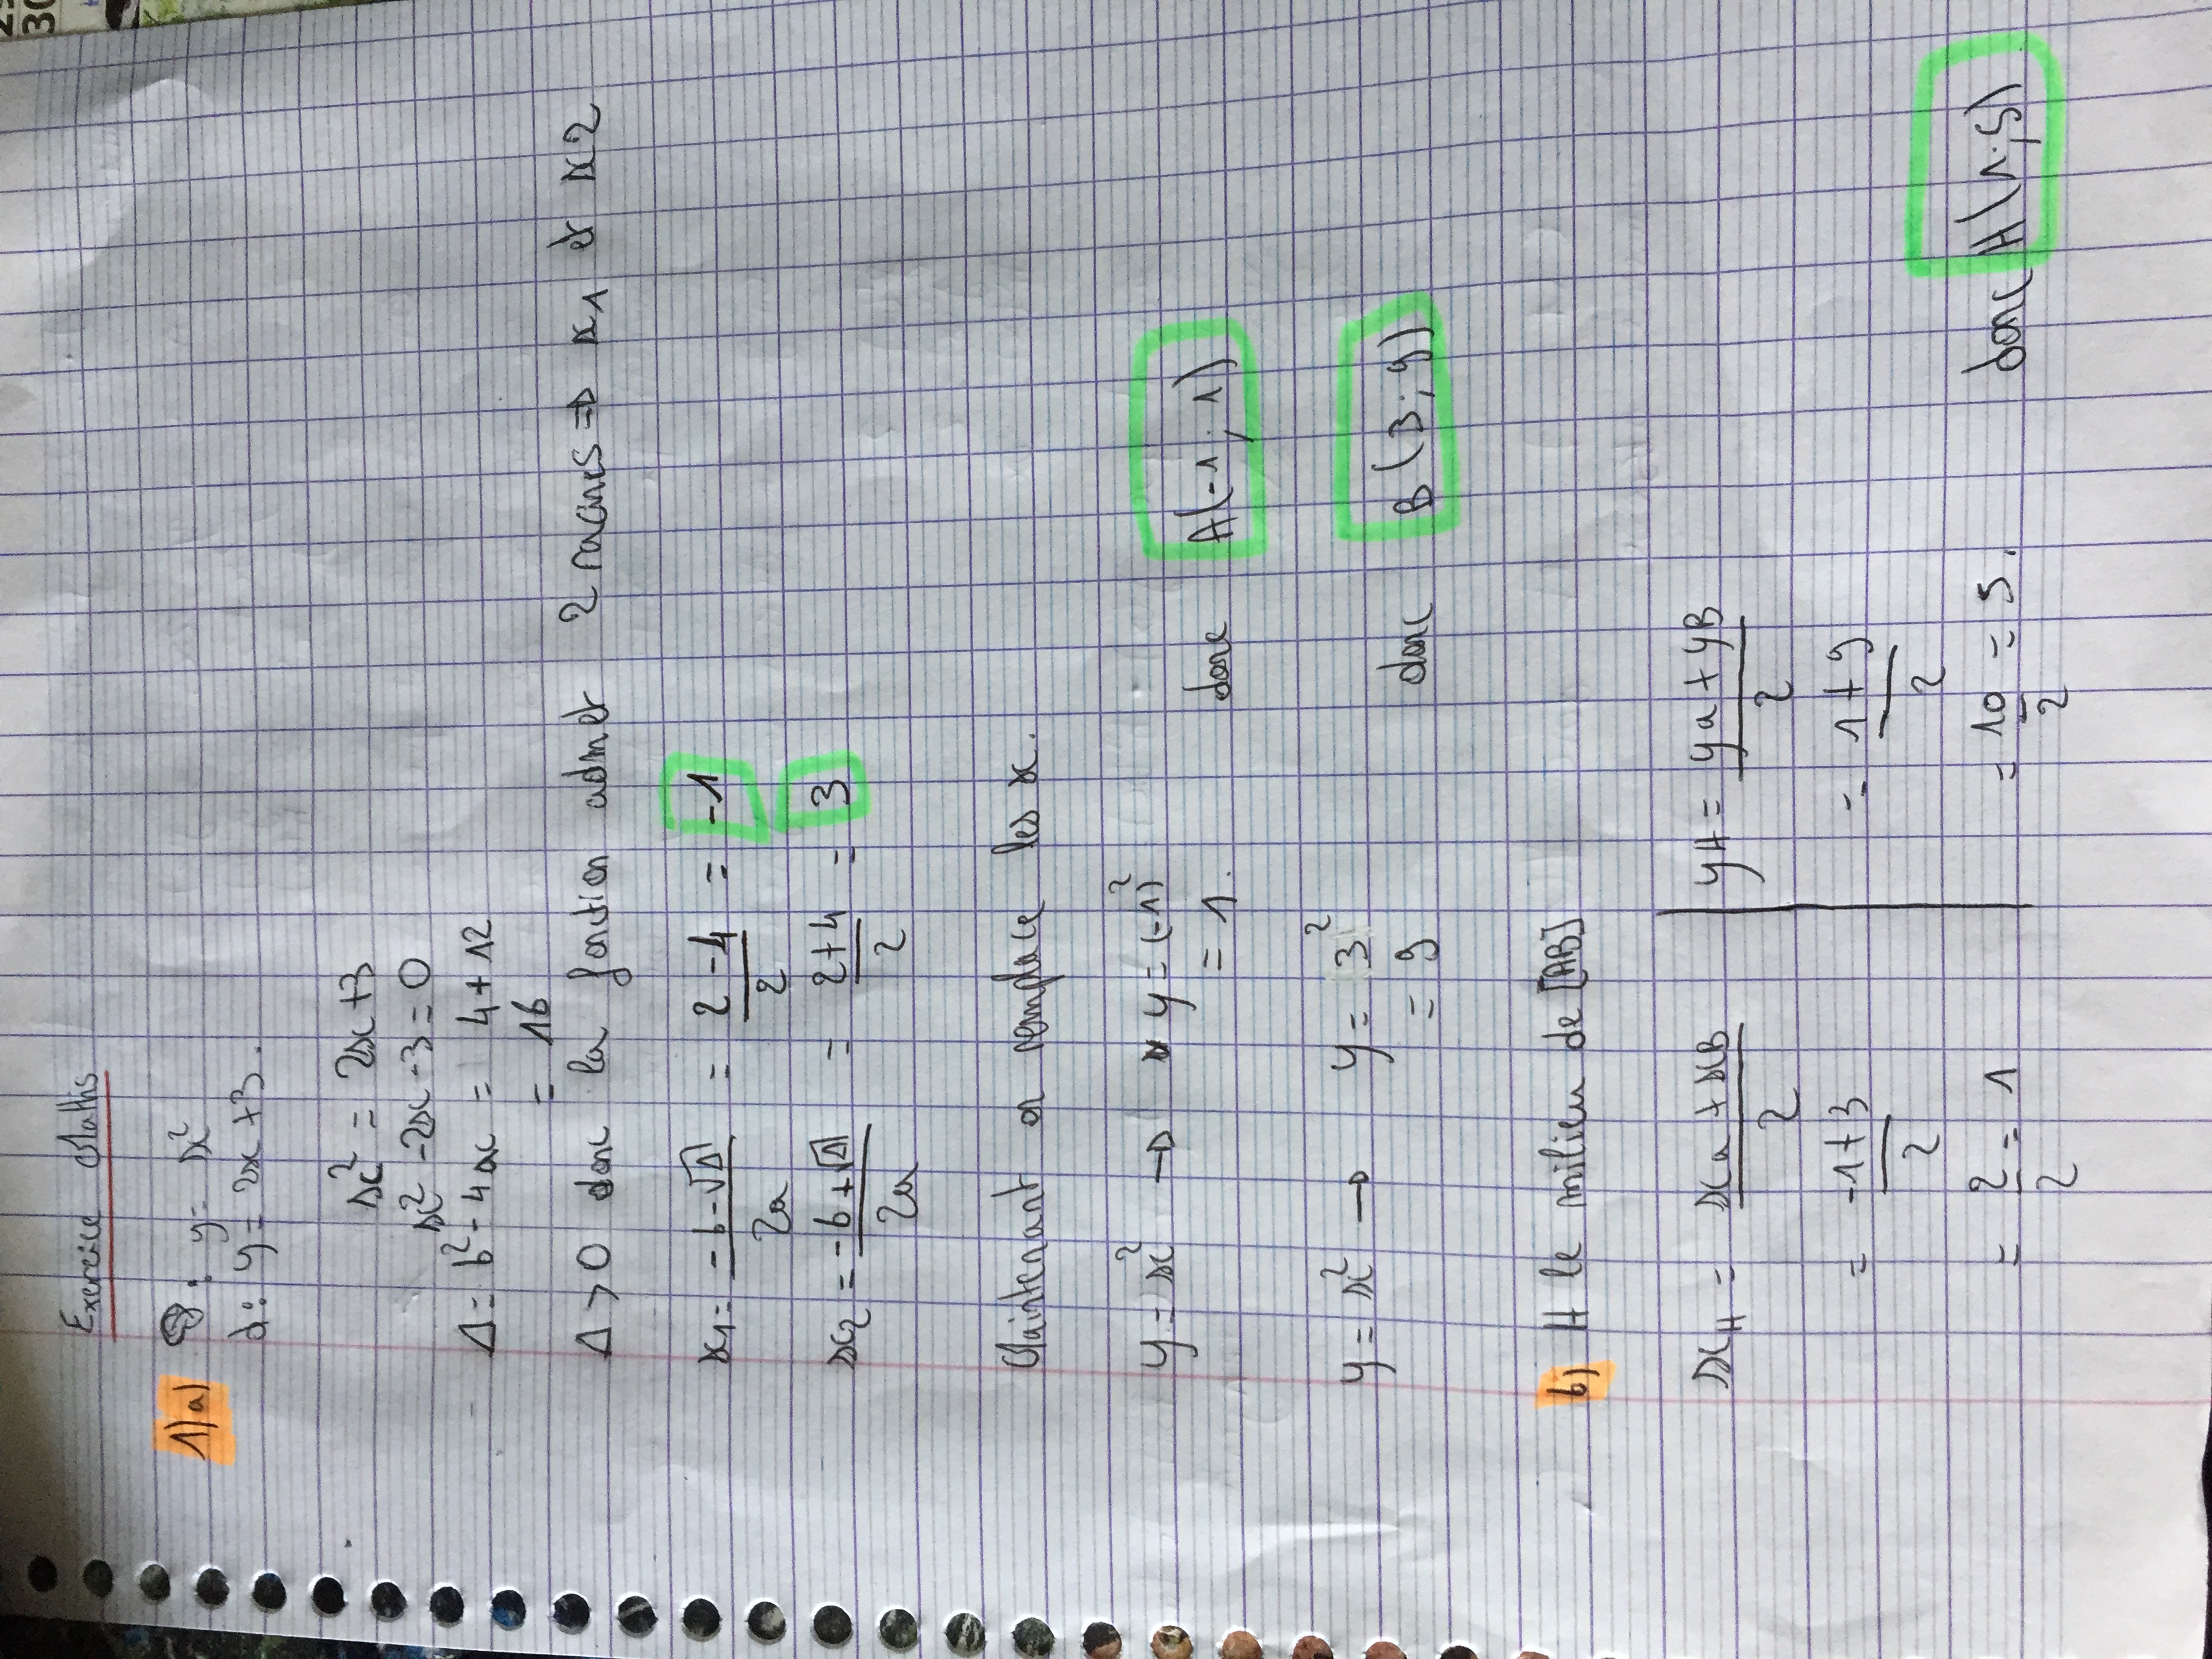 Exercice Maths
1)a) P: y = x²
d: y = 2x + 3.
x² = 2x + 3
x² - 2x - 3 = 0
Δ = b² - 4ac = 4 + 12
= 16
Δ > 0 donc la fonction admet 2 racines ⇒ x1 et x2
x1 = (-b - √Δ)/2a = (2 - 4)/2 = -1
x2 = (-b + √Δ)/2a = (2 + 4)/2 = 3
Maintenant on remplace les x.
y = x² → y = (-1)²
= 1. donc A(-1; 1)
y = x² → y = 3²
= 9 donc B(3; 9)
b) H le milieu de [AB]
xH = (xa + xB)/2 | yH = (ya + yB)/2
= (-1 + 3)/2 | = (1 + 9)/2
= 2/2 = 1 | = 10/2 = 5. donc H(1; 5)